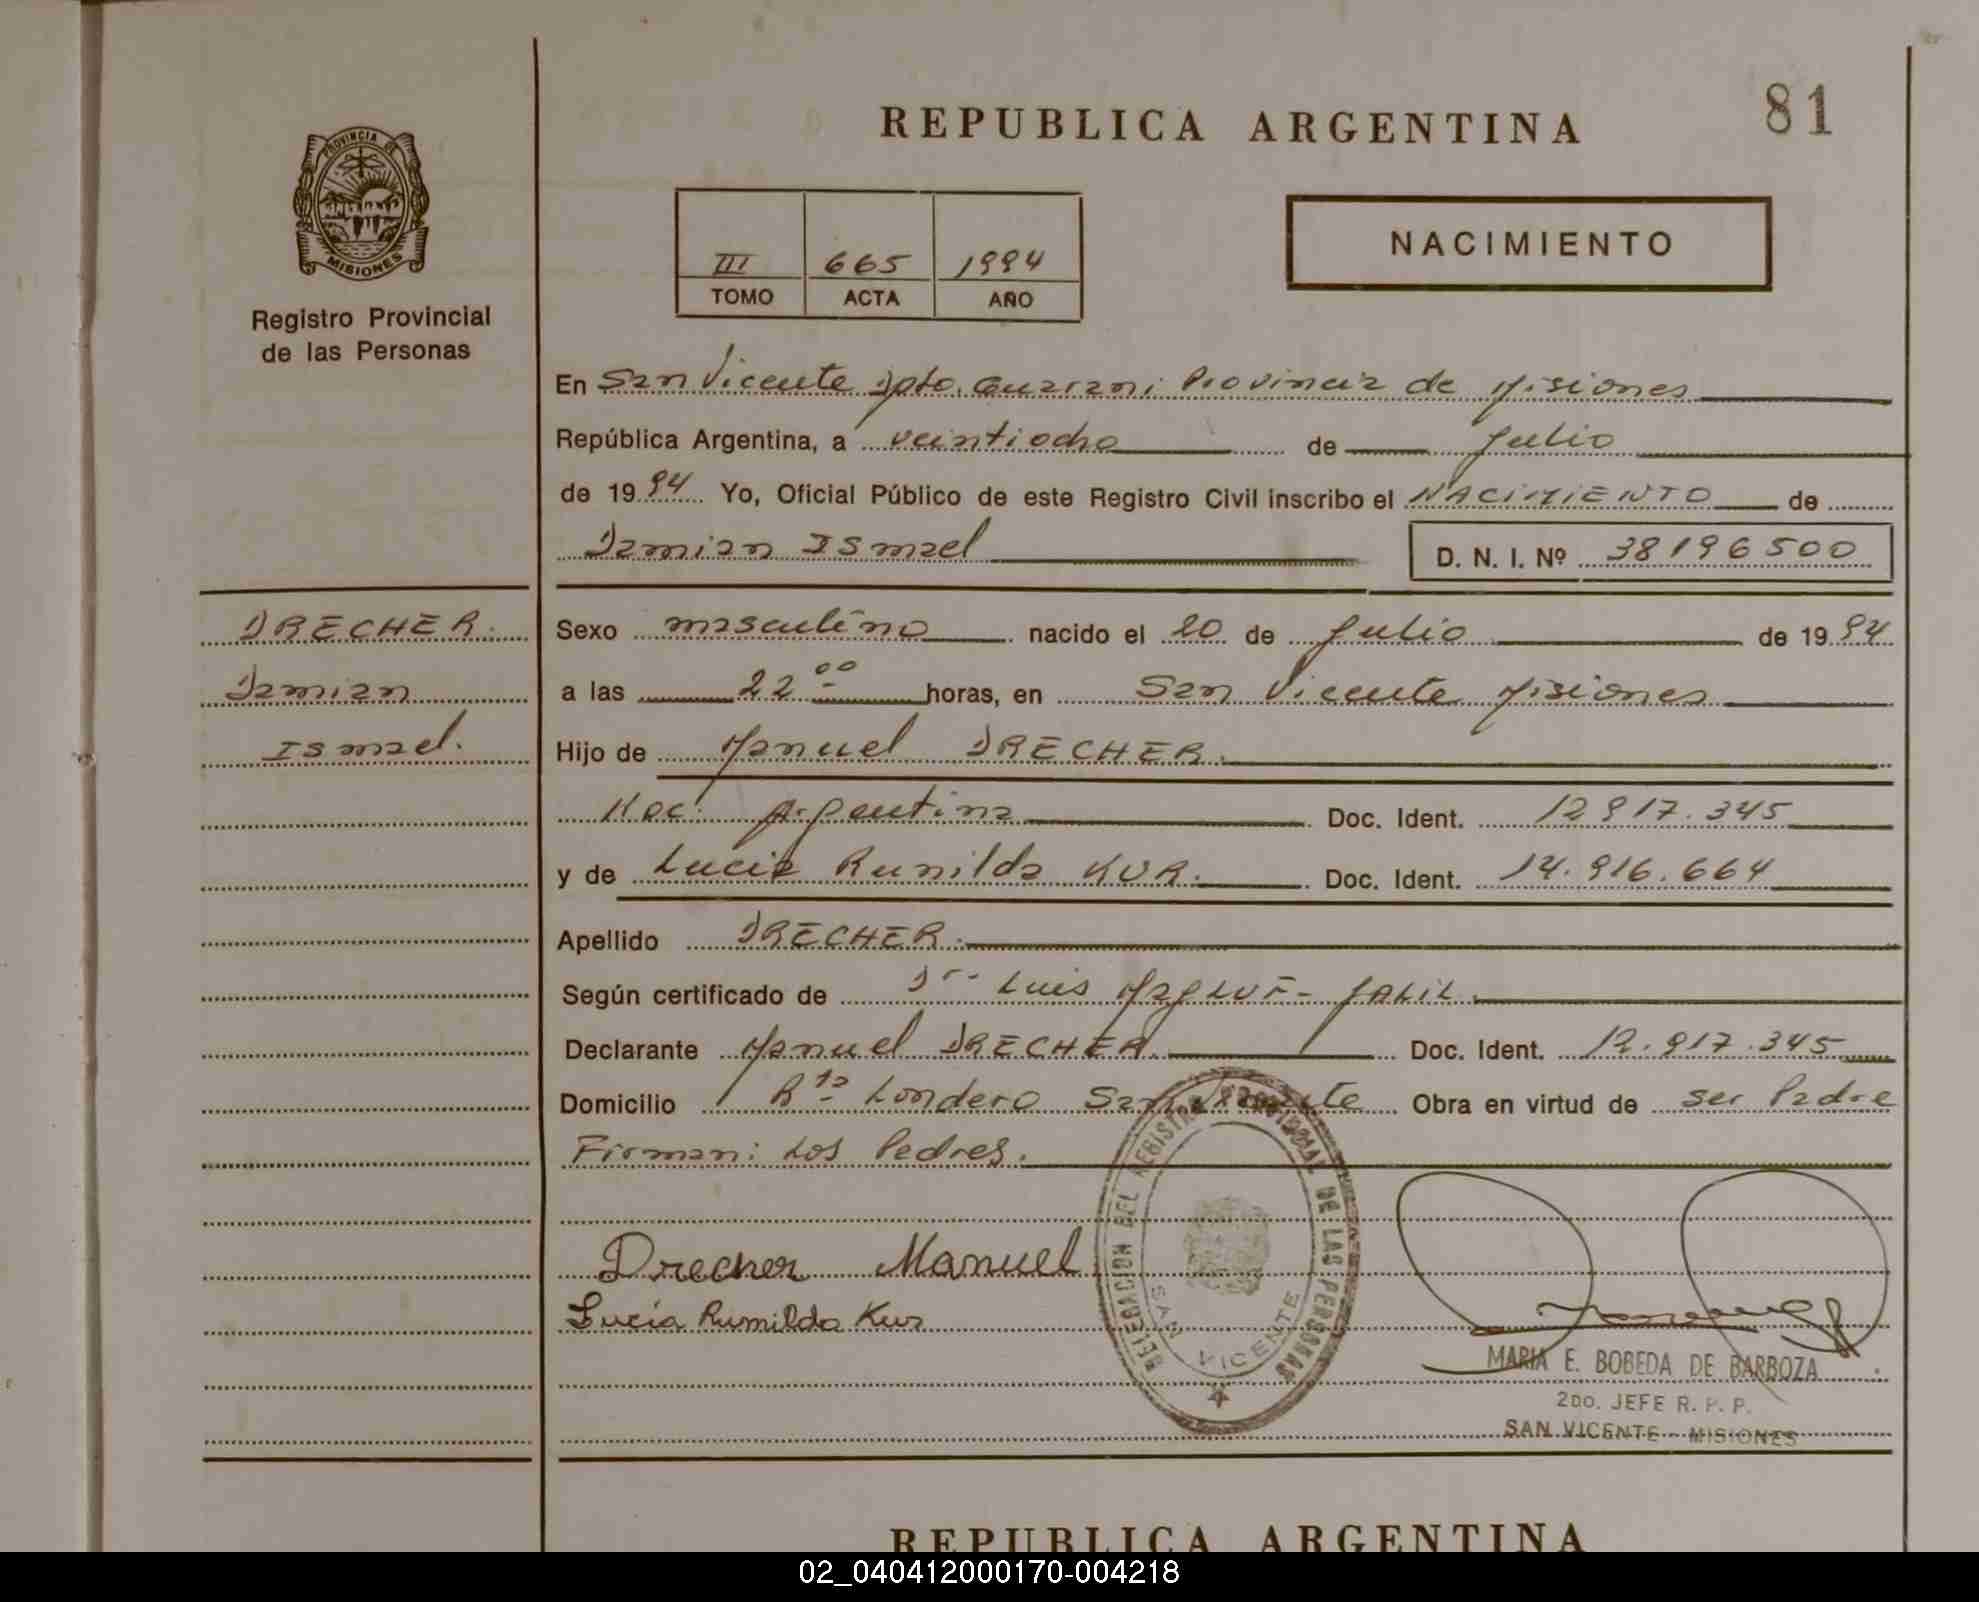 81
REPUBLICA ARGENTINA
PROVINCIA DE
MISIONES
Registro Provincial
de las Personas
III 665 1994
TOMO ACTA AÑO
NACIMIENTO
En San Vicente Dpto. Guarani Provincia de Misiones
República Argentina, a veintiocho de Julio
de 1994 Yo, Oficial Público de este Registro Civil inscribo el NACIMIENTO de
Damian Ismael D. N. I. Nº 38196500
DRECHER.
Damian
Ismael.
Sexo masculino nacido el 20 de Julio de 1994
a las 22 00 horas, en San Vicente Misiones
Hijo de Manuel DRECHER.
Nac. Argentina Doc. Ident. 12917.345
y de Lucia Rumilda KUR. Doc. Ident. 14.916.664
Apellido DRECHER.
Según certificado de Luis JALIL.
Declarante Manuel DRECHER. Doc. Ident. 12.917.345
Domicilio Londero San Vicente Obra en virtud de ser Padre
Firman: Los Padres.
Drecher Manuel
Lucía Rumilda Kur
DELEGACION DEL REGISTRO PROVINCIAL DE LAS PERSONAS
SAN VICENTE
MARIA E. BOBEDA DE BARBOZA
2DO. JEFE R. P. P.
SAN VICENTE - MISIONES
REPUBLICA ARGENTINA
02_040412000170-004218